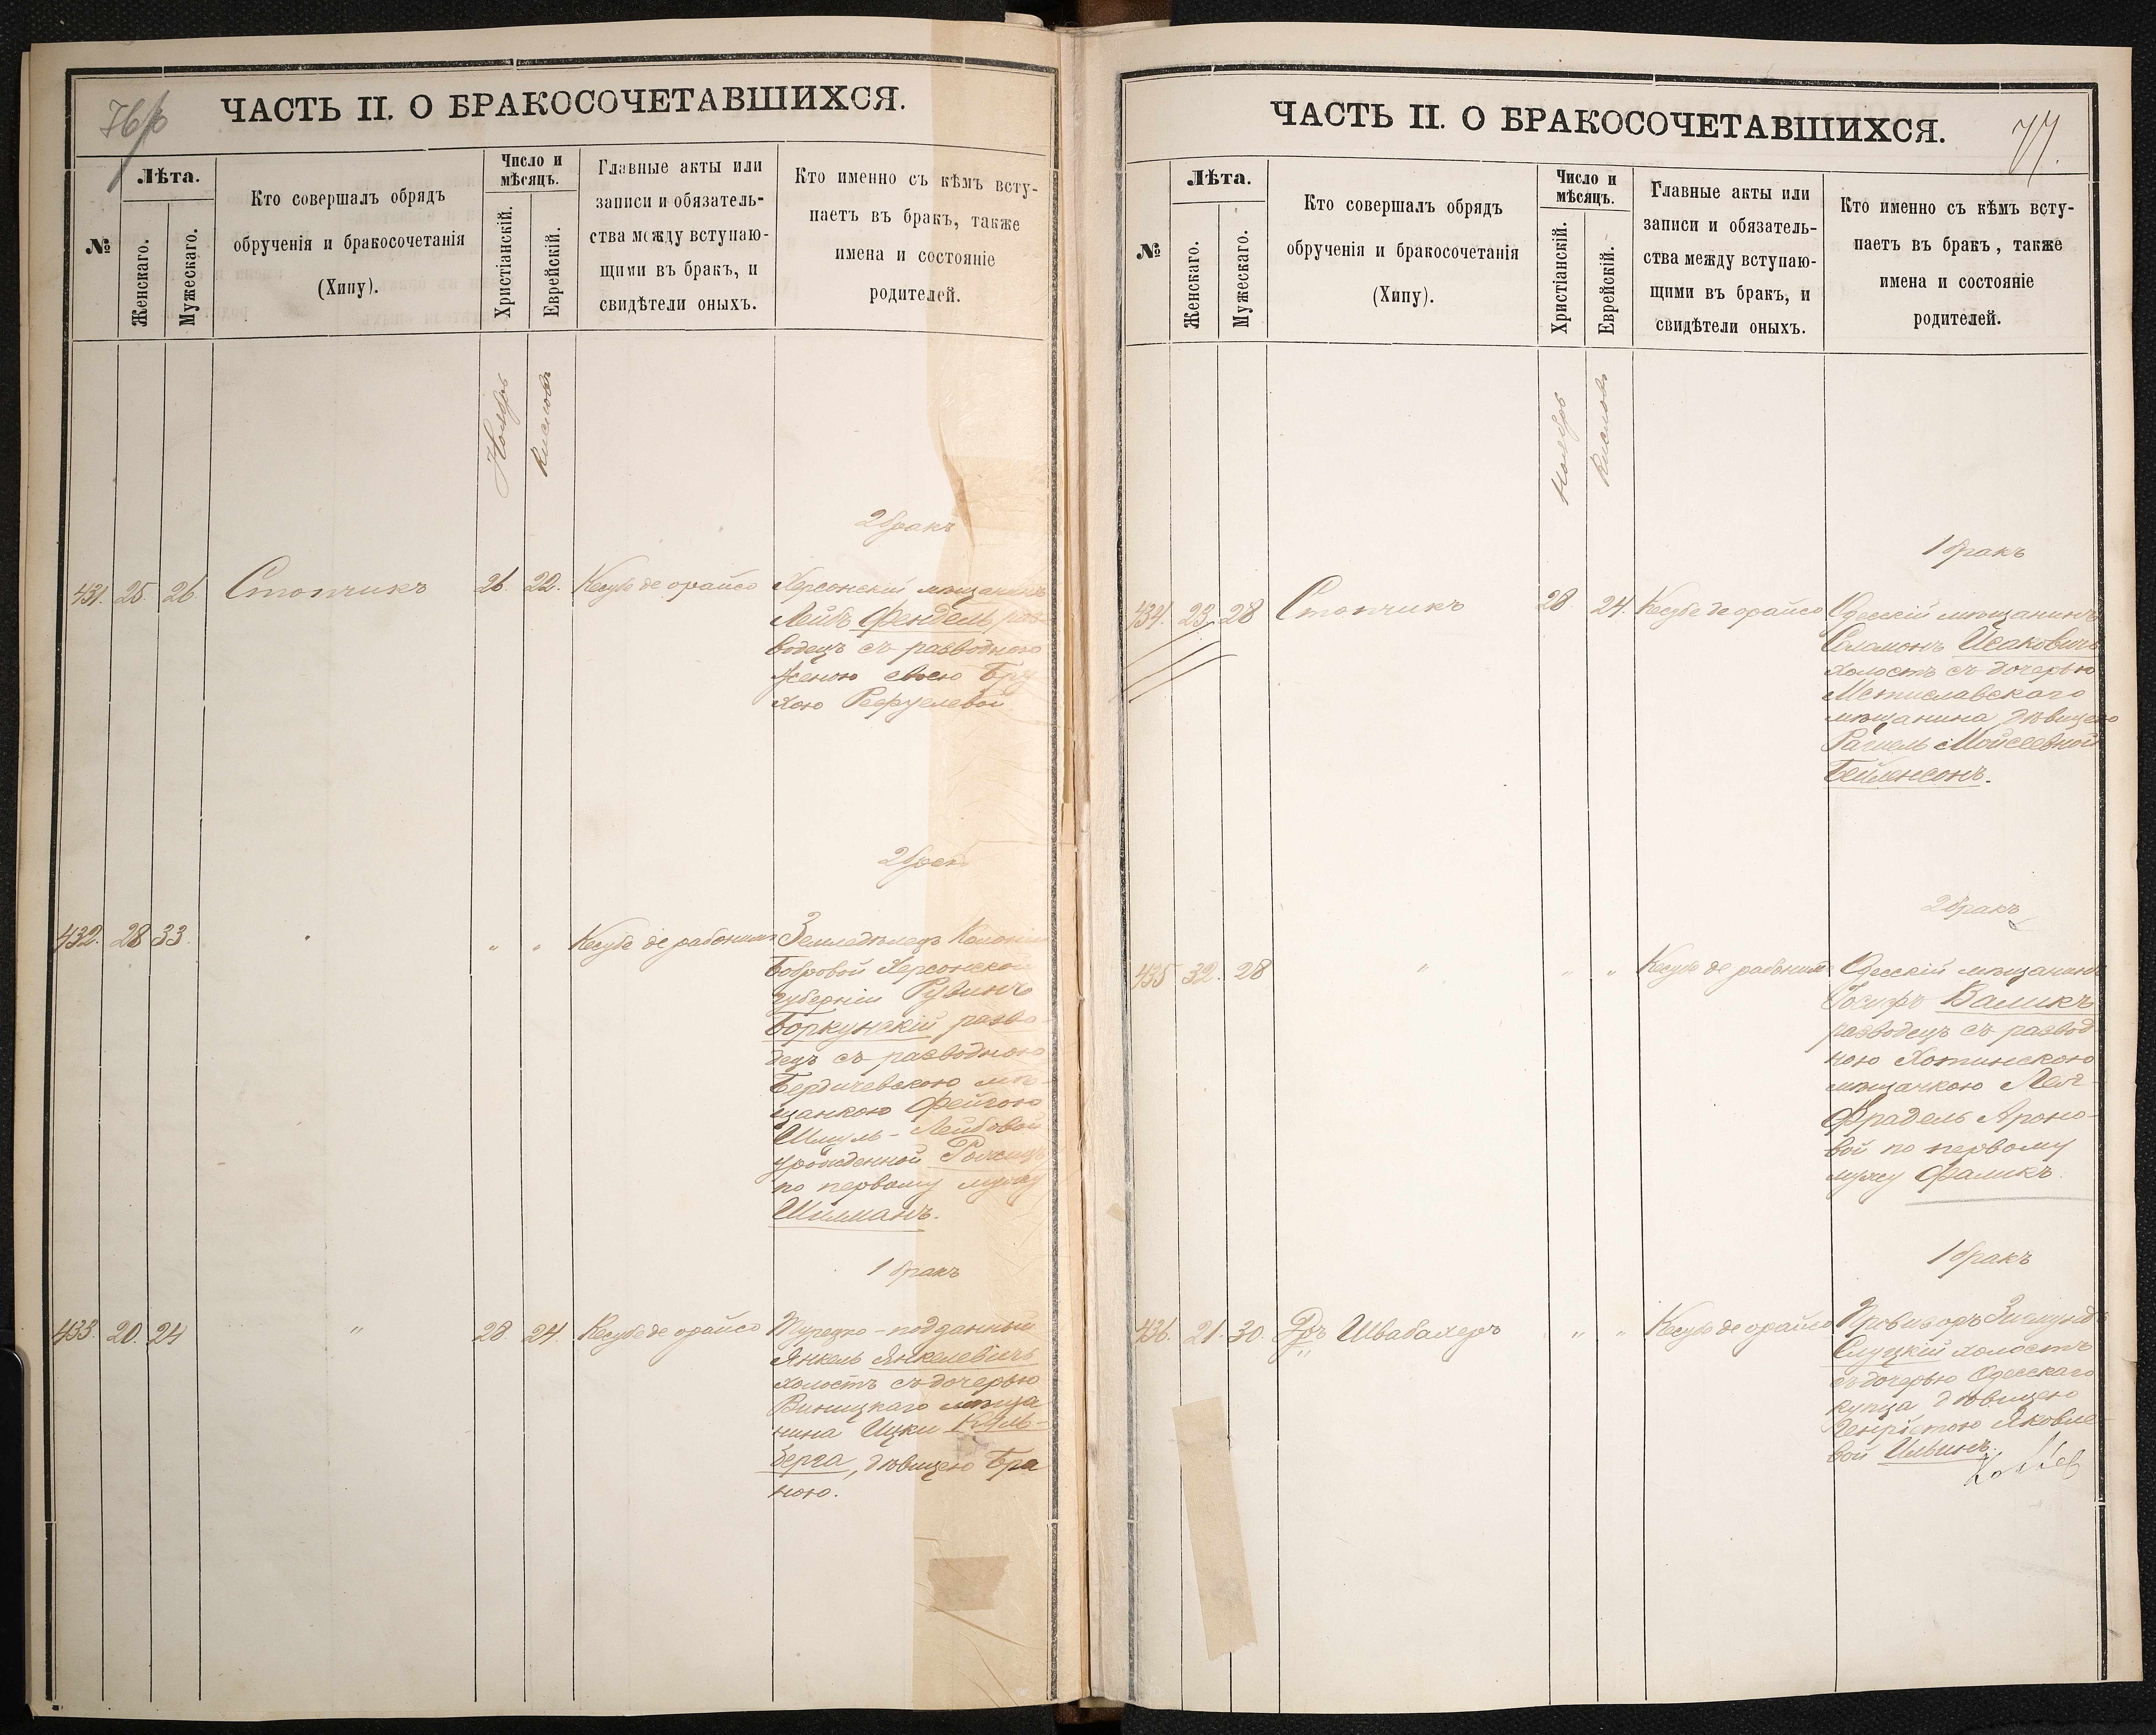 76
ЧАСТЬ II. О БРАКОСОЧЕТАВШИХСЯ.
№
Лѣта.
Женскаго.
Мужескаго.
Кто совершалъ обрядъ
обрученія и бракосочетанія
(Хипу).
Число и
мѣсяцъ.
Христіанскій.
Еврейскій.
Главные акты или
записи и обязатель-
ства между вступаю-
щими въ бракъ, и
свидѣтели оныхъ.
Кто именно съ кѣмъ всту-
паетъ въ бракъ, также
имена и состояніе
родителей.
Ноябрь
Кислевъ
2 бракъ
431. 25. 26. Стопчикъ 26. 22. Кесубе де орайсо Херсонскій мѣщанинъ
Лейбъ Фендель раз-
водецъ съ разводною
женою своею Бру
хою
2 брак
432. 28 33. " " " Кесубе де рабонимъ Земледѣлецъ Колоніи
Бобровой Херсонской
губерніи Рувинъ
Боркунскій разво-
децъ съ разводною
Бердичевскою мѣ-
щанкою Фейгою
Шмуль-Лейбовой
урожденной
по первому мужу
Шилманъ.
1 бракъ
433. 20. 24 " 28. 24. Кесубе де орайсо Турецко-подданный
Янкель Янкелевичъ
холостъ съ дочерью
Виницкаго мѣща
нина Ицки Куль-
берга, дѣвицею Бра
ною.
77.
ЧАСТЬ II. О БРАКОСОЧЕТАВШИХСЯ.
№
Лѣта.
Женскаго.
Мужескаго.
Кто совершалъ обрядъ
обрученія и бракосочетанія
(Хипу).
Число и
мѣсяцъ.
Христіанскій.
Еврейскій.
Главные акты или
записи и обязатель-
ства между вступаю-
щими въ бракъ, и
свидѣтели оныхъ.
Кто именно съ кѣмъ всту-
паетъ въ бракъ, также
имена и состояніе
родителей.
Ноябрь
Кислевъ
1 бракъ
434. 23. 28 Стопчикъ 28. 24. Кесубе де орайсо Одесскій мѣщанинъ
Соломонъ Исаковичъ
холостъ съ дочерью
Мстиславского
мѣщанина дѣвицею
Рахиель Мойсеевной
Бейленсонъ.
2 бракъ
435 32. 28 " " " Кесубе де рабонимъ Одесскій мѣщанинъ
Іосифъ Валикъ
разводецъ съ развод
ною Хотинскою
мѣщанкою Лея-
Фрадель Ароно-
вой по первому
мужу Фаликъ.
1 бракъ
436. 21. 30. Др. Швабахеръ " " Кесубе де орайсо Провизоръ Зигмундъ
Слуцкій холостъ
съ дочерью Одесскаго
купца дѣвицею
Генріетою Яковле
вой